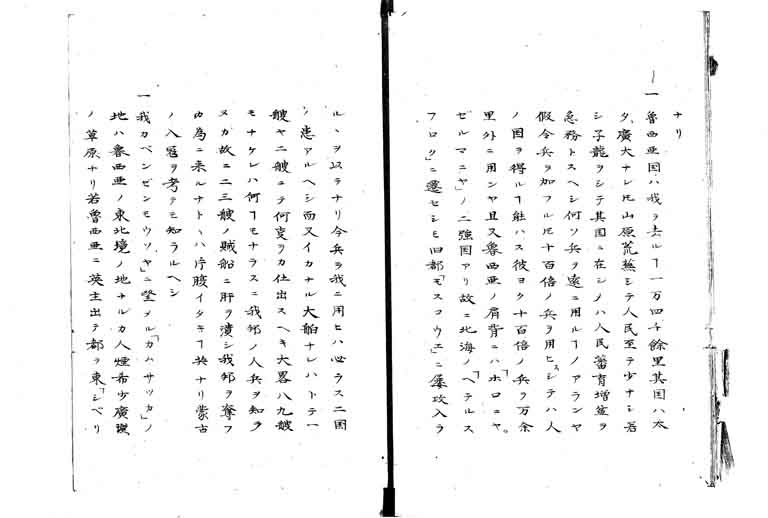 ナリ
一魯西亜国ハ我ヲ去ルヿ一万四千餘里其国ハ太
タ廣大ナレ𪜈山原荒蕪シテ人民至テ少ナシ若
シ子龍ヲシテ其国ニ在シメハ人民蕃育増益ヲ
急務トスヘシ何ソ兵ヲ遠ニ用ルヿノアランヤ
假令兵ヲ加フル𪜈十百倍ノ兵ヲ用ヒシテハ人
ノ国ヲ得ルヿ能ハス彼ヨク十百倍ノ兵ヲ万余
里外ニ用ンヤ且又魯西亜ノ肩背ニハ「ホロニヤ。
ゼルマニヤ」ノ二強国アリ故ニ北海ノ「ヘテルス
フロク」ニ遷セシモ旧都「モスコウエ」ニ屡攻入ラ
ルヽヲ以テナリ今兵ヲ我ニ用ヒハ必ラス二国
ノ患アルヘシ而又イカナル大舶ナレハトテ一
艘ヤ二艘ニテ何変ヲカ仕出スヘキ大畧八九艘
モナケレハ何ヿモナラスニ我邦ノ人兵ヲ知ラ
ヌカ故ニ二三艘ノ賊船ニ肝ヲ潰シ我邦ヲ奪フ
カ為ニ来ルナトヽハ片腹イタキヿ共ナリ蒙古
ノ入寇ヲ考テモ知ラルヘシ
一我カベンゼンモウソヤニ登メル「カムサツカ」ノ
地ハ魯西亜ノ東北境ノ地ナルカ人煙希少廣漠
ノ草原ナリ若魯西亜ニ英主出テ都ヲ東「シベリ